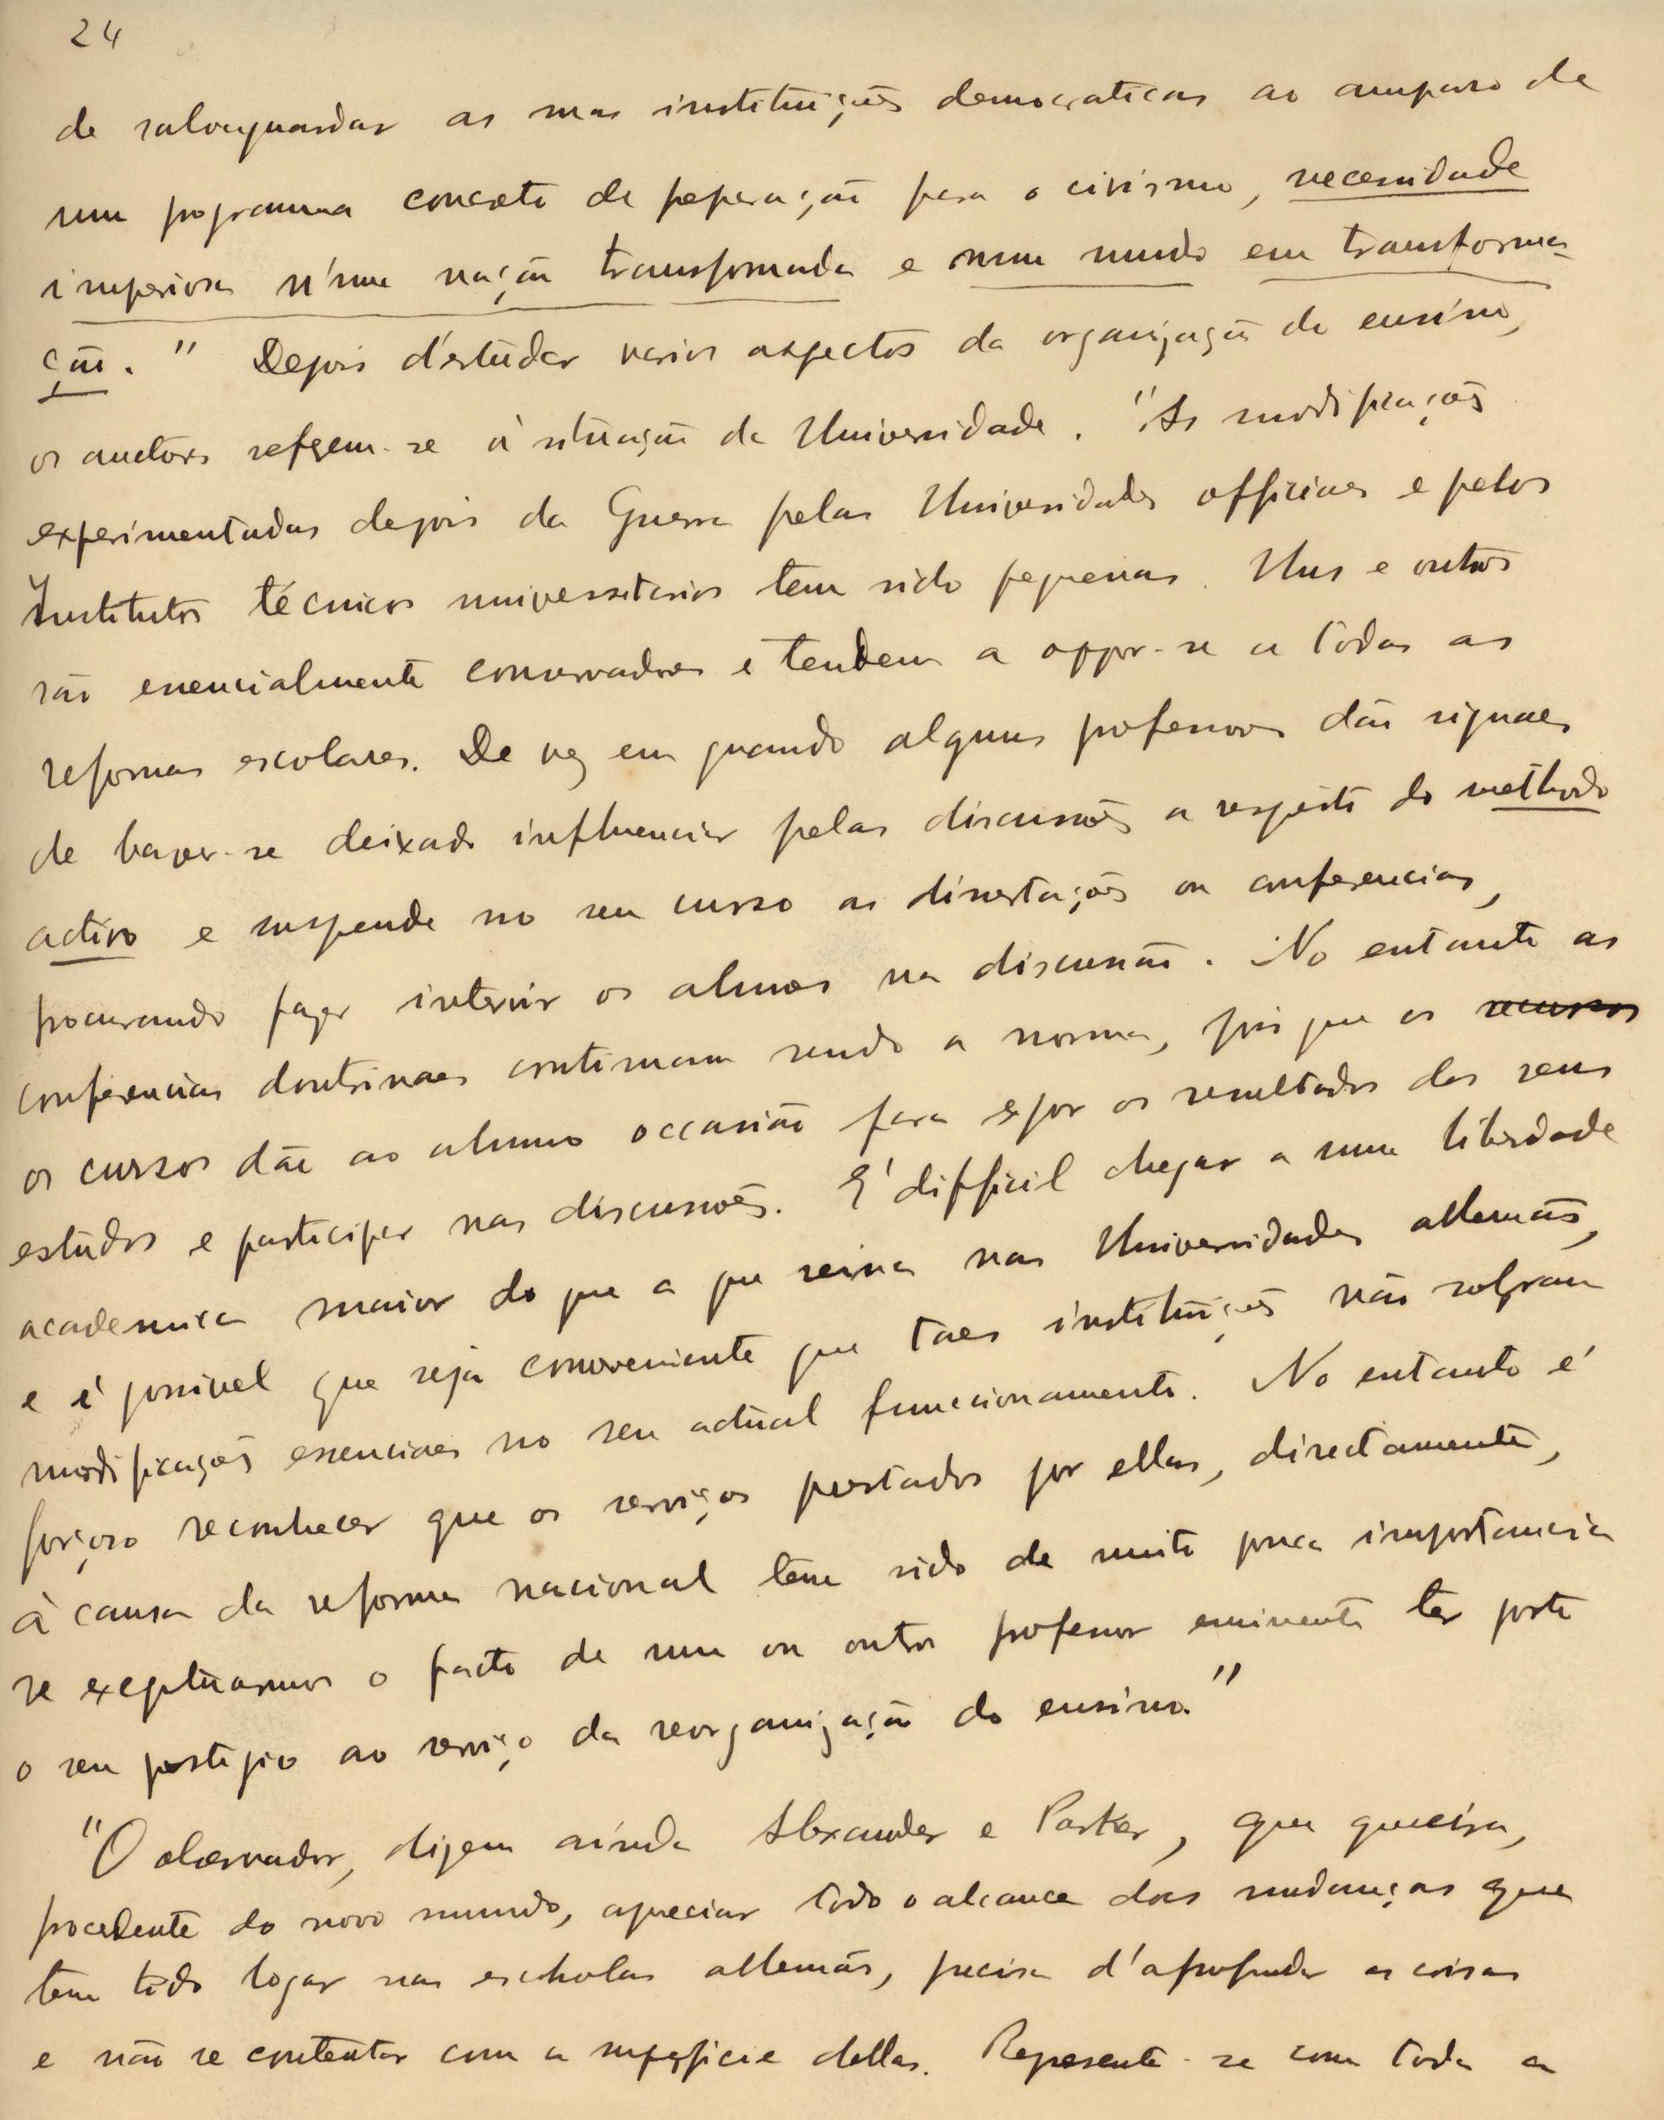 24
de salvaguardar as suas instituições democraticas ao amparo de
um programma concreto de preparação para o civismo, necessidade
imperiosa n'uma nação transformada e num mundo em transforma-
ção." Depois d'estudar varios aspectos da organização do ensino,
os auctores referem-se á situação da Universidade. "As modificações
experimentadas depois da Guerra pelas Universidades officiaes e pelos
Institutos técnicos universitarios tem sido pequenas. Uns e outros
são essencialmente conservadores e tendem a oppor-se a todas as
reformas escolares. De vez em quando alguns professores dão signaes
de haver-se deixado influenciar pelas discussões a respeito do methodo
activo e suspende no seu curso as dissertações ou conferencias,
procurando fazer intervir os alunos na discussão. No entanto as
conferencias doutrinaes continuam sendo a norma, pois que os recursos
os cursos dão ao alumno occasião para expor os resultados dos seus
estudos e participar nas discussões. E' difficil chegar a uma liberdade
academica maior do que a que reina nas Universidades allemãs,
e é possivel que seja conveniente que taes instituições não sofram
modificações essenciaes no seu actual funccionamento. No entanto é
forçoso reconhecer que os serviços prestados por ellas, directamente,
à causa da reforma nacional tem sido de muito pouca importancia
se exceptuarmos o facto de um ou outro professor eminente ter posto
o seu prestigio ao serviço da reorganização do ensino."
"O observador, dizem ainda Alexander e Parker, que queira,
procedente do novo mundo, apreciar todo o alcance das mudanças que
tem tido logar nas escholas allemãs, precisa d'aprofundar as coisas
e não se contentar com a superficie dellas. Represente-se com toda a